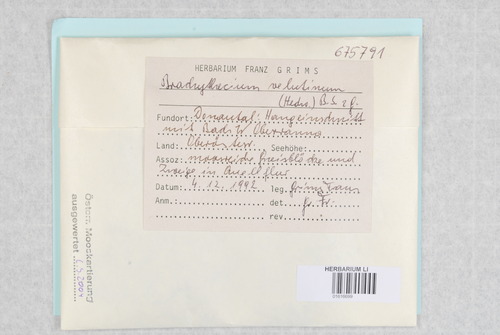 675791
HERBARIUM FRANZ GRIMS
Brachythecium velutinum
(Hedw.) B.S. & G.
Fundort: Donautal: Hangeinschnitt
mit Bach Oberranna
Land: Oberösterr. Seehöhe:
Assoz: moosreiche und
Zweige in
Datum: 4.12.1992 leg. Grims Franz
Anm.: det. G. Fr.
rev.
Österr. Mooskartierung
ausgewertet 2004
HERBARIUM LI